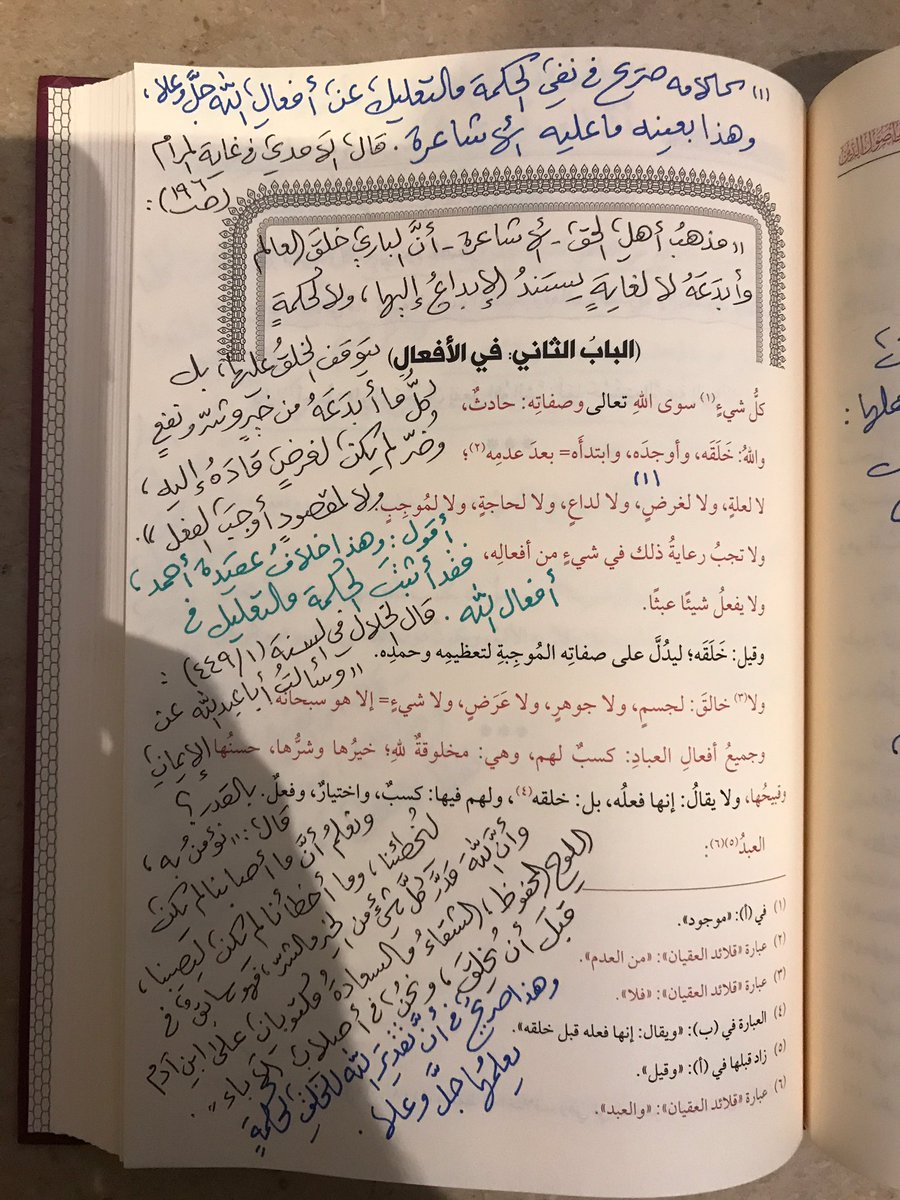 (١) كلامه صريح في نفي الحكمة والتعليل عن أفعال الله جلَّ وعلا،
وهذا بعينه ما عليه الأشاعرة. قال الآمدي في غاية المرام
(صـ١٩٦):
"مذهبُ أهلِ الحق - الأشاعرة - أنَّ الباري خلقَ العالم
وأبدَعَهُ لا لغايةٍ يستندُ الإبداعُ إليها، ولا لحكمةٍ
يتوقف الخلقُ عليها، بل
كلُّ ما أبدَعَهُ من خيرٍ وشرّ ونفعٍ
وضرّ لم يكن لغرضٍ قادَهُ إليه،
ولا لمقصودٍ أوجبَ الفعل".
أقول: وهذا خلافُ عقيدة أحمد،
فقد أثبتَ الحكمة والتعليل في
أفعال الله. قال الخلال في السنة (١/٤٤٩):
"وسألتُ أبا عبدالله عن
الإيمان
بالقدر؟
قال: "نؤمنُ به،
ونعلمُ أنَّ ما أصابنا لم يكن
ليُخطئنا، وما أخطأنا لم يكن ليصيبنا،
وأنَّ اللهَ قدَّرَ كلَّ شيءٍ من الخير والشرّ، فهو سابقٌ في
اللوح المحفوظ، الشقاءُ والسعادة مكتوبان على ابن آدم
قبلَ أن يُخلق، ونحنُ في أصلاب الآباء".
وهذا صريحٌ في أنَّ تقديرَ الله للخلق لحكمةٍ
يعلمُها جلَّ وعلا.
(البابُ الثاني: في الأفعال)
كلُّ شيءٍ(١) سوى اللهِ تعالى وصفاتِه: حادثٌ،
واللهُ: خَلَقَه، وأوجدَه، وابتدأَه= بعدَ عدمِه(٢)؛
(١)
لا لعلةٍ، ولا لغرضٍ، ولا لداعٍ، ولا لحاجةٍ، ولا لمُوجِبٍ
ولا تجبُ رعايةُ ذلك في شيءٍ من أفعالِه،
ولا يفعلُ شيئًا عبثًا.
وقيل: خَلَقَه؛ ليدُلَّ على صفاتِه المُوجِبةِ لتعظيمِه وحمدِه.
ولا(٣) خالقَ: لجسمٍ، ولا جوهرٍ، ولا عَرَضٍ، ولا شيءٍ= إلا هو سبحانَه
وجميعُ أفعالِ العبادِ: كسبٌ لهم، وهي: مخلوقةٌ للهِ؛ خيرُها وشرُّها، حسنُها
وقبيحُها، ولا يقالُ: إنها فعلُه، بل: خلقه(٤)، ولهم فيها: كسبٌ، واختيارٌ، وفعلٌ.
العبدُ(٥)(٦):
(١) في (أ): «موجود».
(٢) عبارة «قلائد العقيان»: «من العدم».
(٣) عبارة «قلائد العقيان»: «فلا».
(٤) العبارة في (ب): «ويقال: إنها فعله قبل خلقه».
(٥) زاد قبلها في (أ): «وقيل».
(٦) عبارة «قلائد العقيان»: «والعبد».